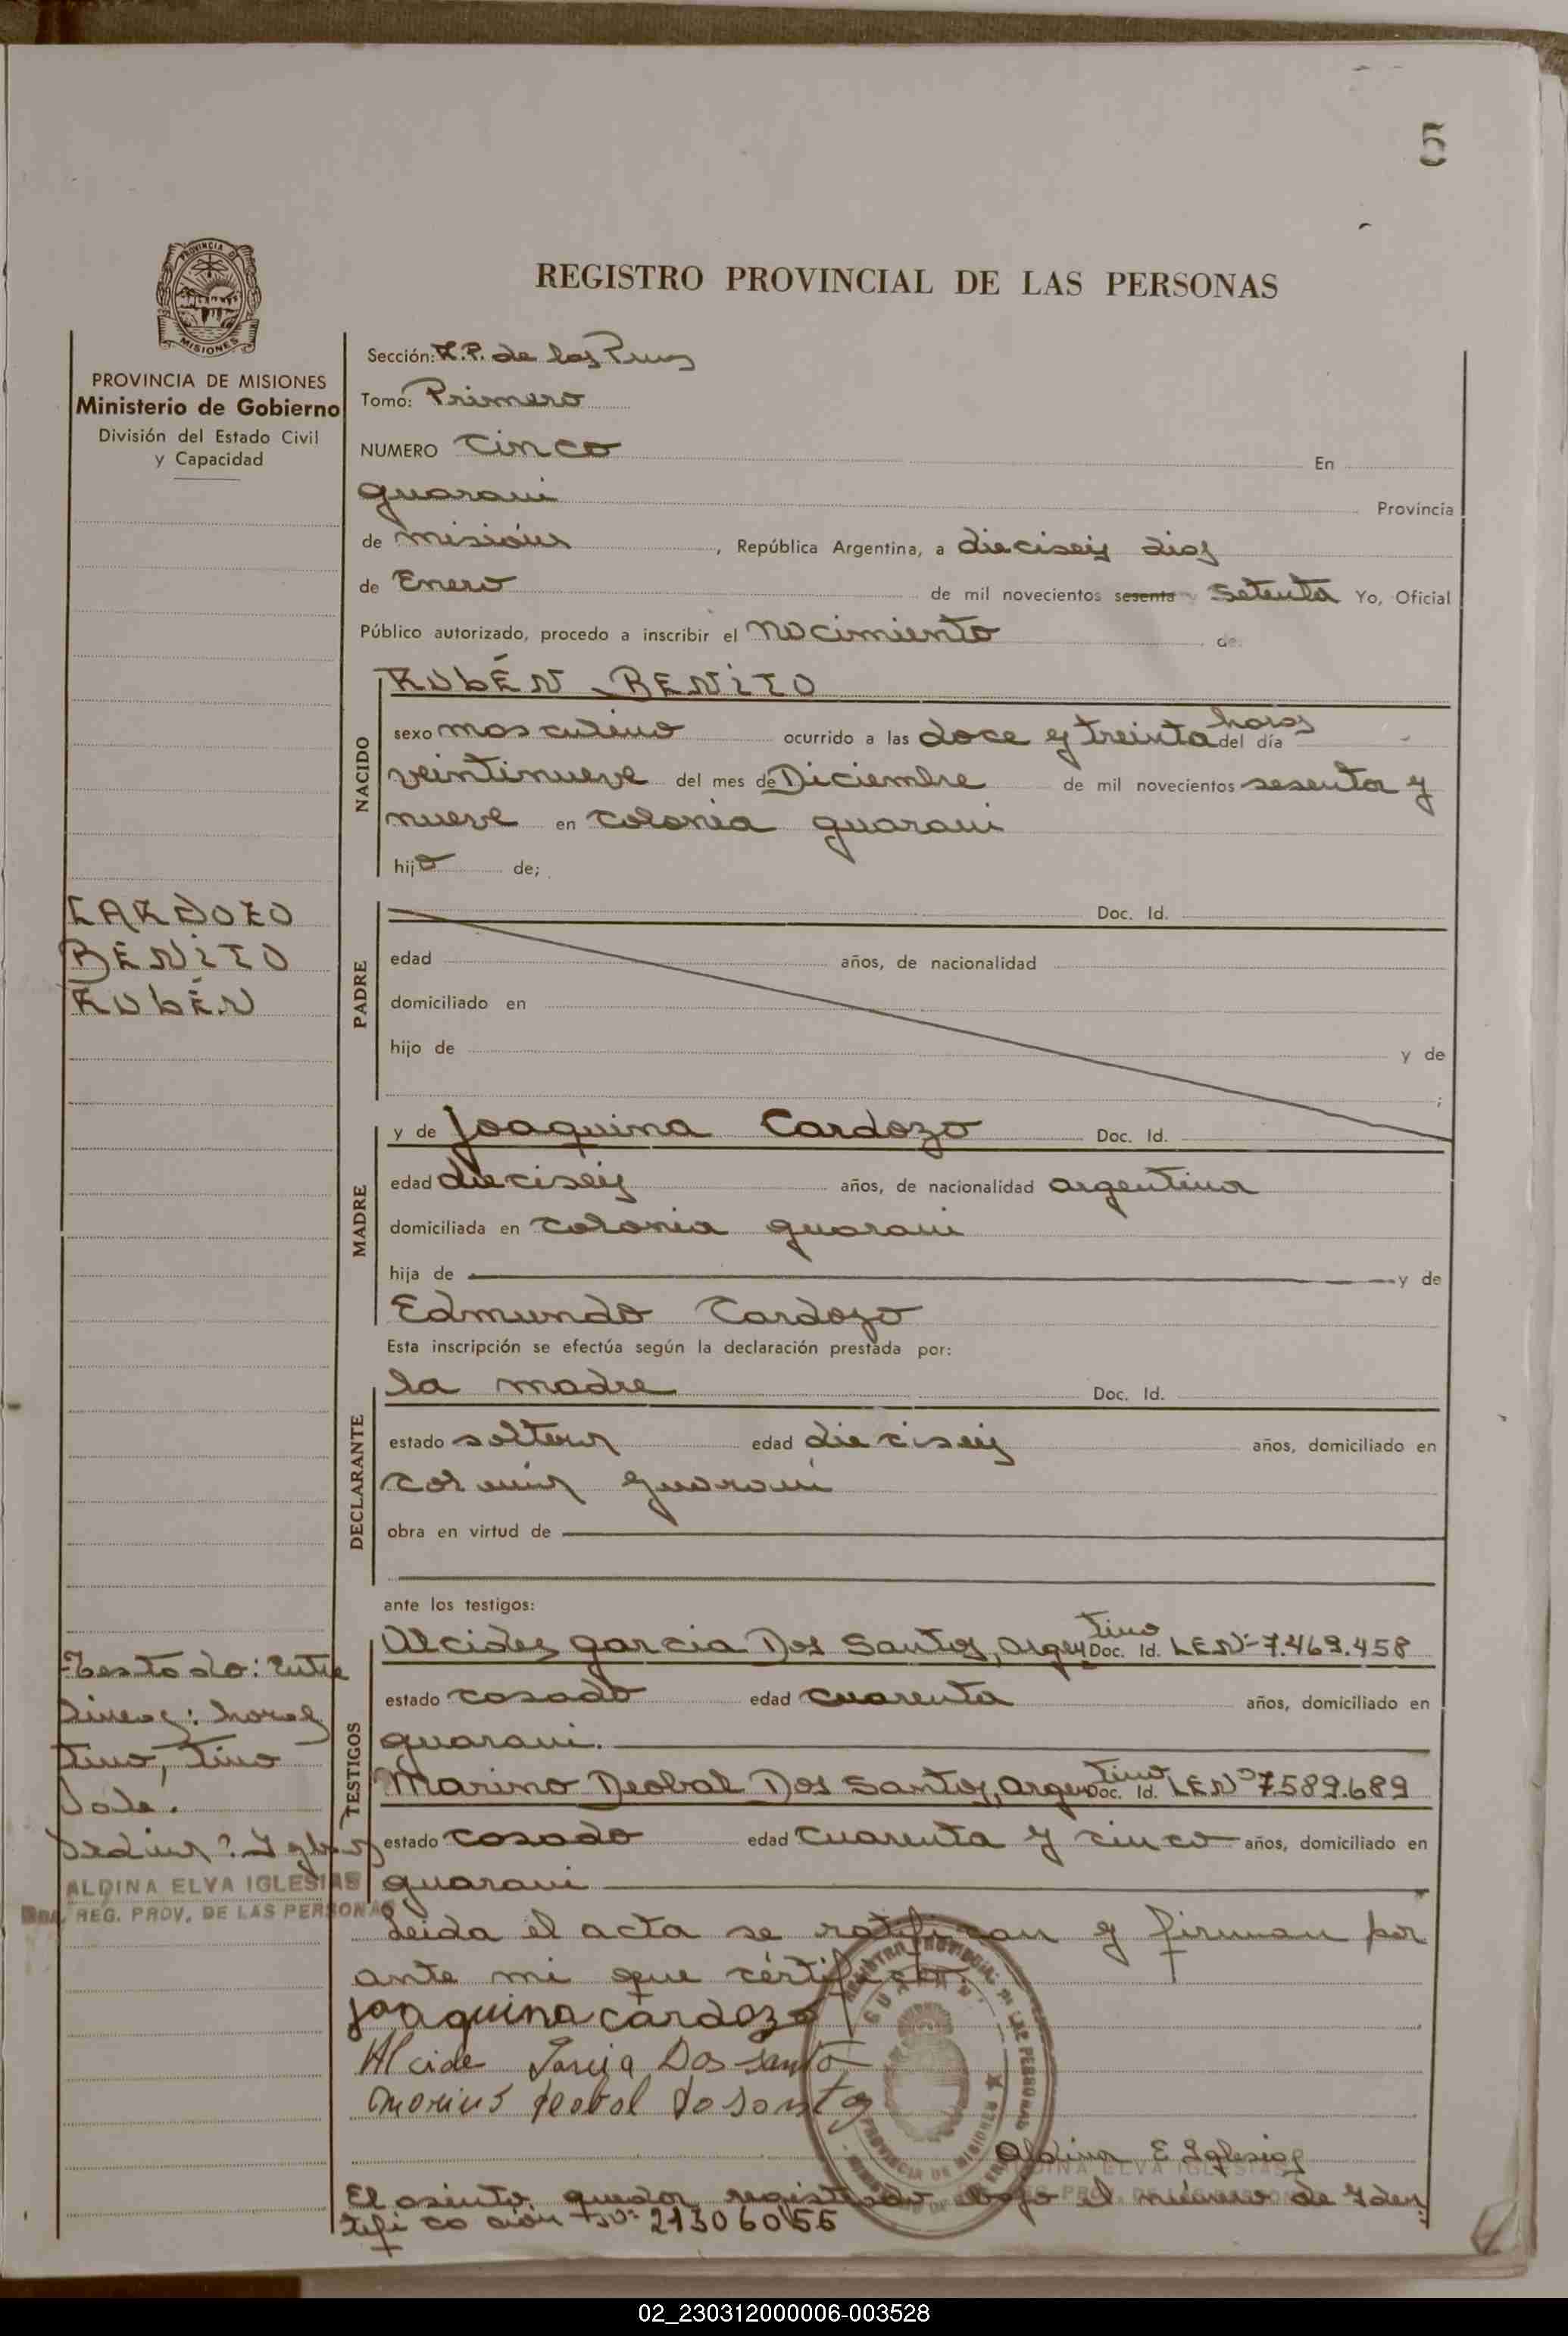 5
REGISTRO PROVINCIAL DE LAS PERSONAS
PROVINCIA DE MISIONES
Ministerio de Gobierno
División del Estado Civil
y Capacidad
CARDOZO
BENITO
RUBÉN
Testado: Entre
líneas: horas
tino, tino
Vale.
ALDINA ELVA IGLESIAS
REG. PROV. DE LAS PERSONAS
Sección: R.P. de las Pers
Tomo: Primero
NUMERO cinco En
guarani Provincia
de misiones, República Argentina, a dieciseis dias
de Enero de mil novecientos sesenta setenta Yo, Oficial
Público autorizado, procedo a inscribir el nacimiento de
NACIDO
RUBÉN BENITO
sexo masculino ocurrido a las doce y treinta horas del día
veintinueve del mes de Diciembre de mil novecientos sesenta y
nueve en colonia guarani
hijo de;
PADRE
Doc. Id.
edad años, de nacionalidad
domiciliado en
hijo de y de
;
MADRE
y de Joaquina Cardozo Doc. Id.
edad dieciseis años, de nacionalidad argentina
domiciliada en colonia guarani
hija de y de
Edmundo Cardozo
Esta inscripción se efectúa según la declaración prestada por:
DECLARANTE
la madre Doc. Id.
estado soltera edad dieciseis años, domiciliado en
colonia guarani
obra en virtud de
ante los testigos:
TESTIGOS
Alcides garcia Dos Santos, argentino Doc. Id. LE Nº 7.469.458
estado casado edad cuarenta años, domiciliado en
guarani.
Marino Deobal Dos Santos, argentino Doc. Id. LE Nº 7.589.689
estado casado edad cuarenta y cinco años, domiciliado en
guarani
Leida el acta se ratifican y firman por
ante mi que certifico.
joaquina cardozo
Alcide Garcia Dos Santo
marino deobal do santos
REGISTRO PROVINCIAL DE LAS PERSONAS
GUARANI
PROVINCIA DE MISIONES
Aldina E Iglesias
ALDINA ELVA IGLESIAS
El asiento queda registrado bajo el número de Iden
tificación Nº: 21306056
02_230312000006-003528